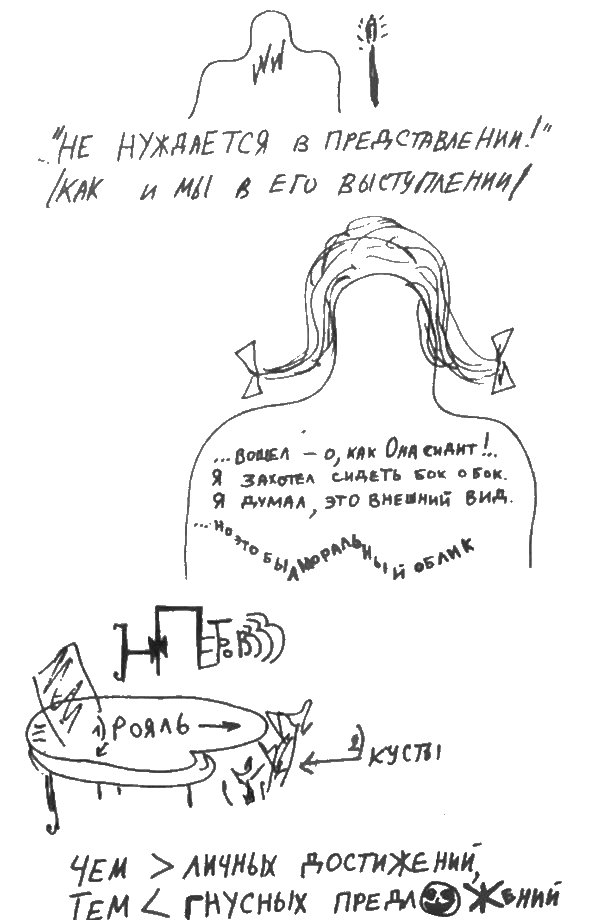 "НЕ НУЖДАЕТСЯ В ПРЕДСТАВЛЕНИИ!"
/КАК И МЫ В ЕГО ВЫСТУПЛЕНИИ/
...ВОШЕЛ – О, КАК ОНА СИДИТ!..
Я ЗАХОТЕЛ СИДЕТЬ БОК О БОК.
Я ДУМАЛ, ЭТО ВНЕШНИЙ ВИД.
...НО ЭТО БЫЛ МОРАЛЬНЫЙ ОБЛИК
1) РОЯЛЬ
2) КУСТЫ
ЧЕМ > ЛИЧНЫХ ДОСТИЖЕНИЙ,
ТЕМ < ГНУСНЫХ ПРЕДЛОЖЕНИЙ